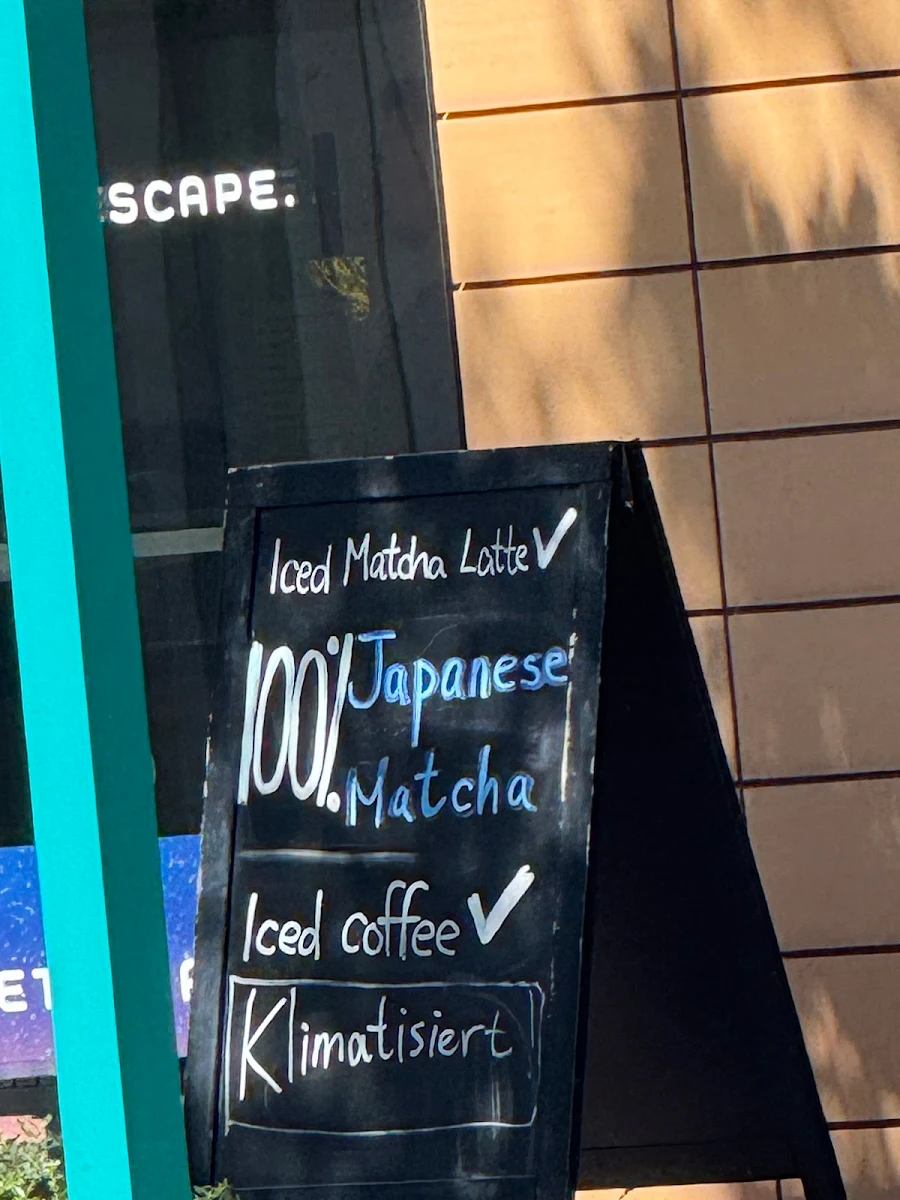 SCAPE.
Iced Matcha Latte ✓
100% Japanese
Matcha
Iced coffee ✓
Klimatisiert
ET